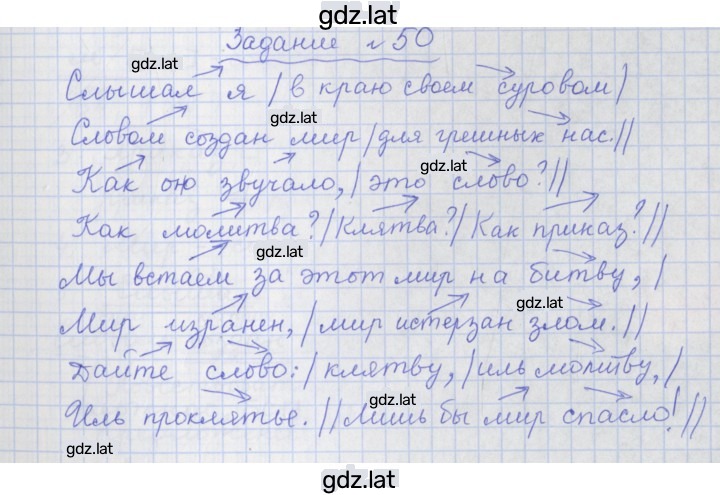 gdz.lat
Задание №50
gdz.lat
Слышал я | в краю своем суровом |
gdz.lat
Словом создан мир | для грешных нас. ||
gdz.lat
Как оно звучало, | это слово? ||
Как молитва? | Клятва? | Как приказ? ||
gdz.lat
Мы встаем за этот мир на битву, |
gdz.lat
Мир изранен, | мир истерзан злом. ||
Дайте слово: | клятву, | иль молитву, |
gdz.lat
Иль проклятье. || Лишь бы мир спасло! ||
gdz.lat
gdz.lat